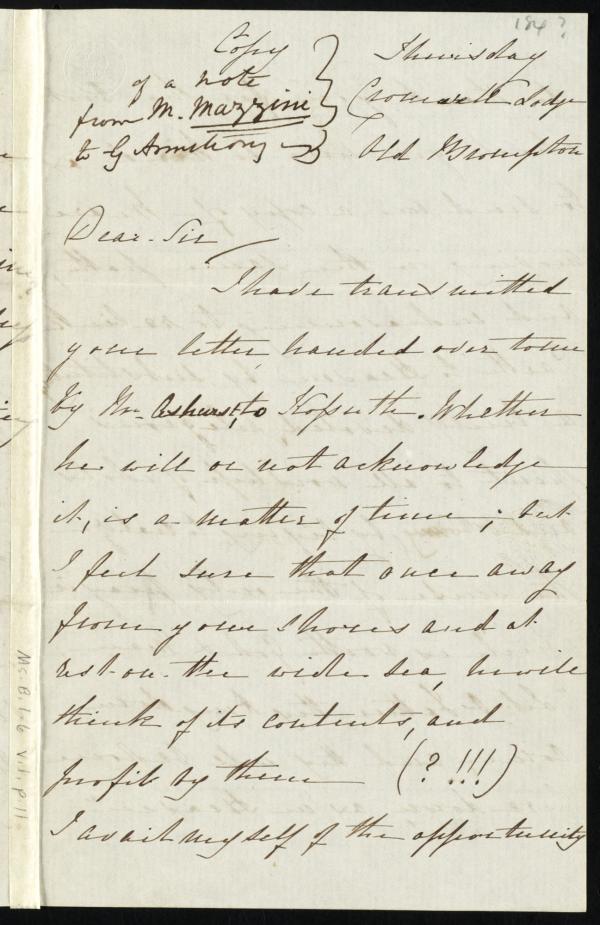 184?
Copy
of a note
from M. Mazzini
to G Armstrong
Thursday
Cromwell Lodge
Old Brompton
Dear Sir
I have transmitted
your letter, handed over to me
by Mr. Ashurst, to Kossuth. Whether
he will or not acknowledge
it, is a matter of time; but
I feel sure that once away
from your shores and at
rest on the wide sea, he will
think of its contents, and
profit by them (?!!!)
I avail myself of the opportunity
Ms. B.1.6 v.1, p.11